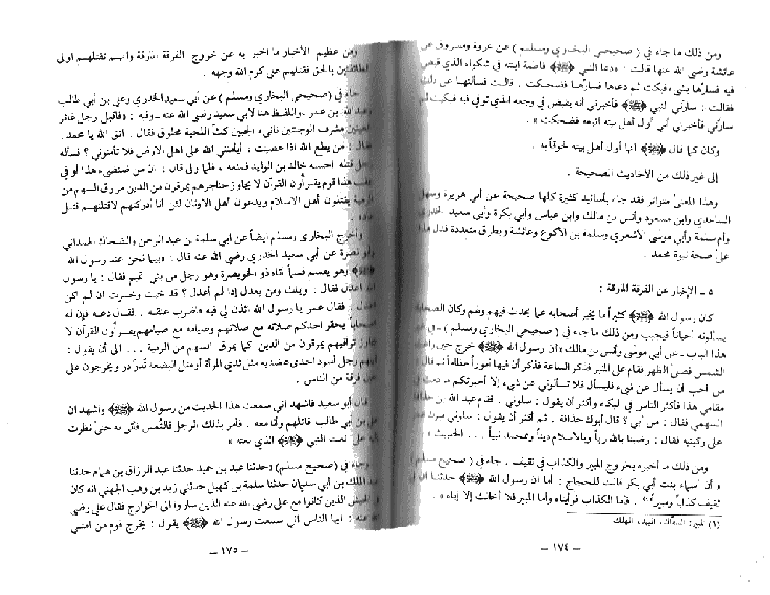 ومن ذلك ما جاء في ( صحيحي البخاري ومسلم ) عن عروة ومسروق عن
عائشة رضي الله عنها قالت : « دعا النبي ﷺ فاطمة ابنته في شكواه الذي قبض
فيه فسارها بشيء فبكت ثم دعاها فسارها فضحكت . قالت فسألتها عن ذلك
فقالت : سارني النبي ﷺ فأخبرني أنه يقبض في وجعه الذي توفي فيه فبكيت ثم
سارني فأخبرني أني أول أهل بيته أتبعه فضحكت » .
وكان كما قال ﷺ أنها أول أهل بيته لحوقاً به .
إلى غير ذلك من الأحاديث الصحيحة .
وهذا المعنى متواتر فقد جاء بأسانيد كثيرة كلها صحيحة عن أبي هريرة وسهل
الساعدي وابن مسعود وأنس بن مالك وابن عباس وأبي بكرة وأبي سعيد الخدري
وأم سلمة وأبي موسى الأشعري وسلمة بن الأكوع وعائشة وبطرق متعددة فدل هذا
على صحة نبوة محمد .
٥ - الإخبار عن الفرقة المارقة :
كان رسول الله ﷺ كثيراً ما يخبر أصحابه عما يحدث فيهم وهم وكان الصحابة
يسألونه أحياناً فيجيب ومن ذلك ما جاء في ( صحيحي البخاري ومسلم ) - في
هذا الباب - عن أبي موسى وأنس بن مالك : أن رسول الله ﷺ خرج حين زاغت
الشمس فصلى الظهر فقام على المنبر فذكر الساعة فذكر أن فيها أموراً عظاماً ثم قال
من أحب أن يسأل عن شيء فليسأل فلا تسألوني عن شيء إلا أخبرتكم ما دمت في
مقامي هذا فأكثر الناس في البكاء وأكثر أن يقول : سلوني . فقام عبد الله بن حذافة
السهمي فقال : من أبي ؟ قال أبوك حذافة . ثم أكثر أن يقول : سلوني فبرك عمر
على ركبتيه فقال : رضينا بالله رباً وبالاسلام ديناً وبمحمد نبياً . . . الحديث »
ومن ذلك ما أخبر به بخروج المبير والكذاب في ثقيف . جاء في ( صحيح مسلم )
أن أسماء بنت أبي بكر قالت للحجاج : أما ان رسول الله ﷺ حدثنا ان في
ثقيف كذاباً ومبيراً (١) . فأما الكذاب فرأيناه وأما المبير فلا أخالك إلا إياه » .
(١) المبير : السفاك ، المبيد ، المهلك
- ١٧٤ -
ومن عظيم الأخبار ما اخبر به عن خروج الفرقة المارقة وانهم تقتلهم اولى
الطائفتين بالحق فقتلهم على كرم الله وجهه .
جاء في ( صحيحي البخاري ومسلم ) عن أبي سعيد الخدري وعلي بن أبي طالب
وعبد الله بن عمر . واللفظ هنا لابي سعيد رضي الله عنه . وفيه : « فأقبل رجل غائر
العينين مشرف الوجنتين ناتىء الجبين كث اللحية محلوق فقال . اتق الله يا محمد .
فقال : من يطع الله اذا عصيت ؛ أيأمنني الله على اهل الارض فلا تأمنوني ؟ فسأله
رجل قتله احسبه خالد بن الوليد فمنعه . فلما ولى قال : ان من ضئضىء هذا أو في
عقب هذا قوم يقرأون القرآن لا يجاوز حناجرهم يمرقون من الدين مروق السهم من
الرمية يقتلون أهل الاسلام ويدعون أهل الاوثان لئن أنا أدركتهم لاقتلنهم قتل
عاد » .
واخرج البخاري ومسلم ايضاً عن ابي سلمة بن عبد الرحمن والضحاك الهمداني
وأبو نضرة عن أبي سعيد الخدري رضي الله عنه قال : « بينما نحن عند رسول الله
ﷺ وهو يقسم قسماً أتاه ذو الخويصرة وهو رجل من بني تميم فقال : يا رسول
الله اعدل فقال : ويلك ومن يعدل إذا لم أعدل ؟ قد خبت وخسرت ان لم اكن
اعدل : فقال عمر يا رسول الله ائذن لي فيه فاضرب عنقه . فقال دعه فإن له
اصحاباً يحقر احدكم صلاته مع صلاتهم وصيامه مع صيامهم يقرأون القرآن لا
يجاوز تراقيهم يمرقون من الدين كما يمرق السهم من الرمية . . . الى أن يقول :
آيتهم رجل أسود احدى عضديه مثل ثدي المرأة أو مثل البضعة تدردر ويخرجون على
حين فرقة من الناس .
قال أبو سعيد فاشهد اني سمعت هذا الحديث من رسول الله ﷺ واشهد ان
علي بن أبي طالب قاتلهم وأنا معه . فأمر بذلك الرجل فالتُمس فأتي به حتى نظرت
إليه على نعت النبي ﷺ الذي نعته »
وجاء في ( صحيح مسلم ) « حدثنا عبد بن حميد حدثنا عبد الرزاق بن همام حدثنا
عبد الملك بن أبي سليمان حدثنا سلمة بن كهيل حدثني زيد بن وهب الجهني انه كان
في الجيش الذين كانوا مع علي رضي الله عنه الذين ساروا الى الخوارج فقال علي رضي
الله عنه : ايها الناس اني سمعت رسول الله ﷺ يقول : يخرج قوم من امتي
- ١٧٥ -